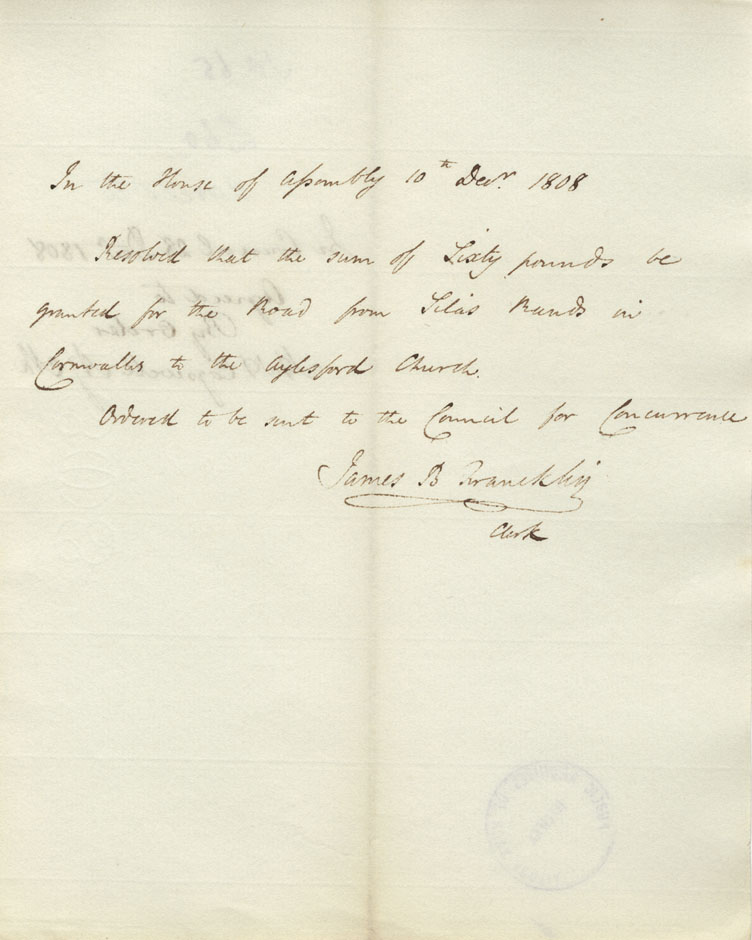 In the House of Assembly 10th Decr. 1808
Resolved that the sum of Sixty pounds be
granted for the Road from Silas Rands in
Cornwallis to the Aylesford Church.
Ordered to be sent to the Council for Concurrence
James B Francklin
Clerk